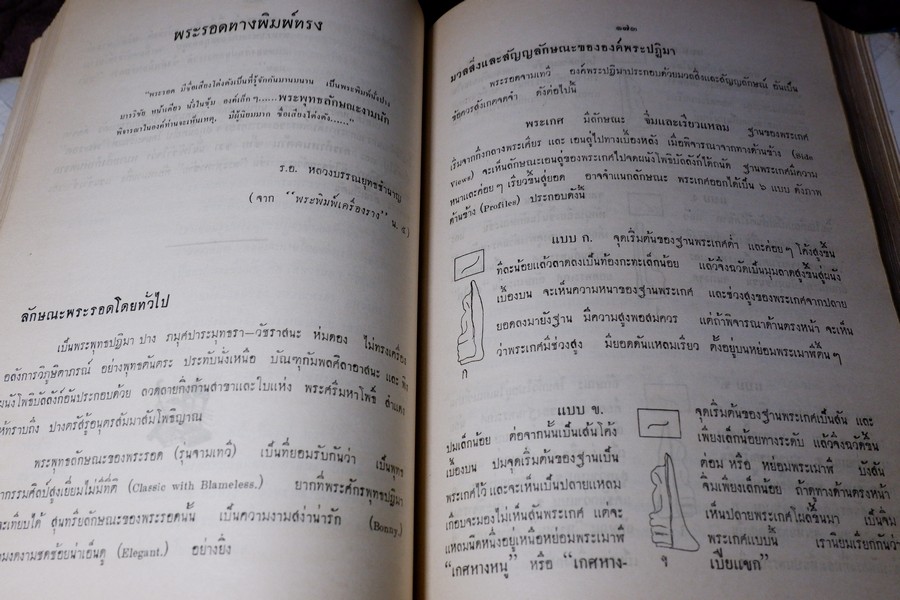 พระรอดทางพิมพ์ทรง
"พระรอด มีชื่อเสียงโด่งดังเป็นที่รู้จักกันมานมนาน เป็นพระพิมพ์นั่งปาง
มารวิชัย หน้าเดียว นั่งในซุ้ม องค์เล็ก ๆ.....พระพุทธลักษณะงามนัก
พิจารณาในองค์ท่านจะเห็นเหตุ. มีผู้นิยมมาก ชื่อเสียงโด่งดัง......"
ร.อ. หลวงบรรณยุทธชำนาญ
(จาก "พระพิมพ์เครื่องราง" น. ๕)
ลักษณะพระรอดโดยทั่วไป
เป็นพระพุทธปฏิมา ปาง ภมุศปาระมุทธรา—วัชราสนะ ห่มดอง ไม่ทรงเครื่อง
อลังการวิภูษิตาภรณ์ อย่างพุทธตันตระ ประทับนั่งเหนือ บัณฑุกัมพลศิลาอาสนะ และ พิง
ผนังโพธิบัลลังก์อันประกอบด้วย ลวดลายกิ่งก้านสาขาและใบแห่ง พระศรีมหาโพธิ์ สำแดง
ให้ทราบถึง ปางตรัสรู้อนุตรสัมมาสัมโพธิญาณ
พระพุทธลักษณะของพระรอด (รุ่นจามเทวี) เป็นที่ยอมรับกันว่า เป็นพุทธ
ากรรมศิลป์สูงเยี่ยมไม่มีที่ติ (Classic with Blameless.) ยากที่พระศักรพุทธปฏิมา
จะเทียบได้ สุนทรียลักษณะของพระรอดนั้น เป็นความงามสง่าน่ารัก (Bonny.)
งดงามชดช้อยน่าเอ็นดู (Elegant.) อย่างยิ่ง
๑๗๓
มวลสิ่งและสัญญลักษณะขององค์พระปฏิมา
พระรอดจามเทวี องค์พระปฏิมาประกอบด้วยมวลสิ่งและสัญญลักษณ์ อันเป็น
ข้อควรสังเกตจดจำ ดังต่อไปนี้
พระเกศ มีลักษณะ จิ่มและเรียวแหลม ฐานของพระเกศ
เริ่มจากกึ่งกลางพระเศียร และ เอนลู่ไปทางเบื้องหลัง เมื่อพิจารณาจากทางด้านข้าง (Side
Views) จะเห็นลักษณะเอนลู่ของพระเกศไปจดผนังโพธิบัลลังก์ได้ถนัด ฐานพระเกศมีความ
หนาและค่อย ๆ เรียวขึ้นสู่ยอด อาจจำแนกลักษณะ พระเกศออกได้เป็น ๖ แบบ ดังภาพ
ด้านข้าง (Profiles) ประกอบดังนี้
แบบ ก. จุดเริ่มต้นของฐานพระเกศต่ำ และค่อย ๆ โค้งสูงขึ้น
ทีละน้อยแล้วลาดลงเป็นท้องกะทะเล็กน้อย แล้วจึงฉวัดเป็นมุมลาดสูงขึ้นสู่ผนัง
เบื้องบน จะเห็นความหนาของฐานพระเกศ และช่วงสูงของพระเกศจากปลาย
ยอดลงมายังฐาน มีความสูงพอสมควร แต่ถ้าพิจารณาด้านตรงหน้า จะเห็น
ว่าพระเกศมีช่วงสูง มียอดดันแหลมเรียว ตั้งอยู่บนหย่อมพระเมาฬีตื้น ๆ
ก
แบบ ข. จุดเริ่มต้นของฐานพระเกศเป็นสัน และ
ปมเล็กน้อย ต่อจากนั้นเป็นเส้นโค้ง เพียงเล็กน้อยทางระดับ แล้วจึงฉวัดขึ้น
เบื้องบน ปมจุดเริ่มต้นของฐานเป็น ต่อม หรือ หย่อมพระเมาฬี บังสัน
พระเกศไว้ และจะเห็นเป็นปลายแหลม จิ่มเพียงเล็กน้อย ถ้าดูทางด้านตรงหน้า
เกือบจะมองไม่เห็นสันพระเกศ แต่จะ เห็นปลายพระเกศโผล่ขึ้นมา เป็นจิ่ม
แหลมนิดหนึ่งอยู่เหนือหย่อมพระเมาฬี พระเกศแบบนี้ เรานิยมเรียกกันว่า
"เกศหางหนู" หรือ "เกศหาง- เปียแขก"
ข